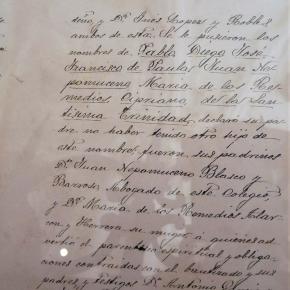 deño, y Dª Inés Lopez y Robles
ambos de esta. Se le pusieron los
nombres de Pablo Diego José
Francisco de Paula Juan Ne-
pomuceno Maria de los Re-
medios, Cipriano de la San-
tisima Trinidad, declaró su pa-
dre no haber tenido otro hijo de
este nombre, fueron sus padrinos
Dn Juan Nepomuceno Blasco y
Barroso Abogado de este Colegio,
y Dª Maria de los Remedios Alar-
con y Herrera su muger á quienes ad-
vertió el parentesco espiritual y obliga-
ciones contraidas con el bautizado y sus
padres, y testigos Dn Antonio